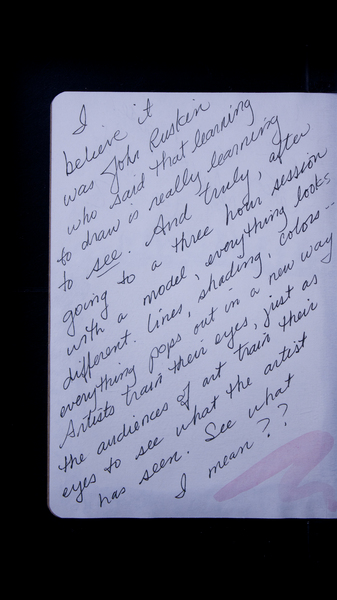 I
believe it
was John Ruskin
who said that learning
to draw is really learning
to see. And truly, after
going to a three hour session
with a model, everything looks
different. Lines, shading, colors--
everything pops out in a new way
Artists train their eyes, just as
the audiences of art train their
eyes to see what the artist
has seen. See what
I mean??